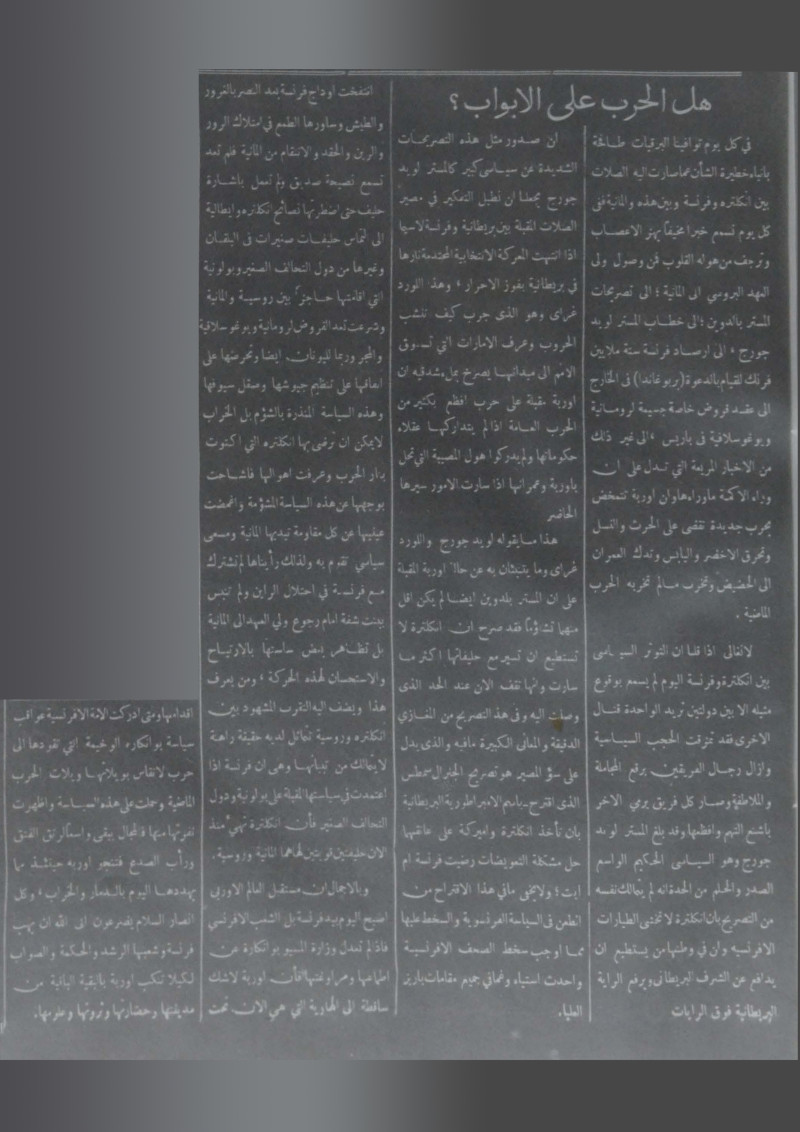 هل الحرب على الابواب؟
في كل يوم توافينا البرقيات طافحة
بانباء خطيرة الشأن عما صارت اليه الصلات
بين انكلتره وفرنسة وبين هذه والمانية ففي
كل يوم نسمع خبرا مخيفا يهز الاعصاب
وترجف من هوله القلوب فمن وصول ولي
العهد البروسي الى المانية ؛ الى تصريحات
المستر بالدوين ؛ الى خطاب المستر لويد
جورج ، الى ارصاد فرنسة ستة ملايين
فرنك للقيام بالدعوة (بربوغاندا) في الخارج
الى عقد قروض خاصة جسيمة لرومانية
ويوغوسلافية في باريس ، الى غير ذلك
من الاخبار المريعة التي تدل على ان
وراء الاكمة ماوراءها وان اوربة تتمخض
بحرب جديدة تقضى على الحرث والنسل
وتحرق الاخضر واليابس وتدك العمران
الى الحضيض وتخرب مالم تخربه الحرب
الماضية .
لانغالى اذا قلنا ان التوتر السياسى
بين انكلترة وفرنسة اليوم لم يسمع بوقوع
مثيله الا بين دولتين تريد الواحدة قتال
الاخرى فقد تمزقت الحجب السياسية
وازال رجال الفريقين برقع المجاملة
والملاطفة وصار كل فريق يرمي الاخر
بأشنع التهم وافظعها وقد بلغ المستر لويد
جورج وهو السياسى الحكيم الواسع
الصدر والحلم من الحدة انه لم يتمالك نفسه
من التصريح بان انكلترة لا تخشى الطيارات
الافرنسيه وان في وطنها من يستطيع ان
يدافع عن الشرف البريطانى ويرفع الراية
البريطانية فوق الرايات
ان صدور مثل هذه التصريحات
الشديدة عن سياسى كبير كالمستر لويد
جورج يجعلنا ان نطيل التفكير في مصير
الصلات المقبلة بين بريطانية وفرنسة لاسيما
اذا انتهت المعركة الانتخابية المحتدمة نارها
في بريطانية بفوز الاحرار ، وهذا اللورد
غراى وهو الذى جرب كيف تنشب
الحروب وعرف الامارات التي تسوق
الامم الى ميدانها يصرخ بملء شدقيه ان
اوربة مقبلة على حرب افظع بكثير من
الحرب العامة اذا لم يتداركها عقلاء
حكوماتها ولم يدركوا هول المصيبة التي تحل
باوربة وعمرانها اذا سارت الامور سيرها
الحاضر
هذا مايقوله لويد جورج واللورد
غراى وما يتنبئان به عن حالة اوربة المقبلة
على ان المستر بلدوين ايضا لم يكن اقل
منهما تشاؤما فقد صرح ان انكلترة لا
تستطيع ان تسير مع حليفاتها اكثر مما
سارت وانها تقف الان عند الحد الذى
وصلت اليه وفى هذا التصريح من المغازي
الدقيقة والمعانى الكبيرة مافيه والذى يدل
على سوء المصير هو تصريح الجنرال سمطس
الذى اقترح باسم الامبراطورية البريطانية
بان تأخذ انكلترة واميركة على عاتقها
حل مشكلة التعويضات رضيت فرنسة ام
ابت ؛ ولايخفى مافي هذا الاقتراح من
الطعن فى السياسة الفرنسوية والسخط عليها
مما اوجب سخط الصحف الافرنسية
واحدث استياء وغما في جميع مقامات باريز
العليا.
انتفخت اوداج فرنسة بعد النصر بالغرور
والطيش وساورها الطمع في امتلاك الرور
والرين والحقد والانتقام من المانية فلم تعد
تسمع نصيحة صديق ولم تعمل باشارة
حليف حتى اضطرتها نصائح انكلتره وايطالية
الى التماس حليفات صغيرات فى البلقان
وغيرها من دول التحالف الصغير وبولونية
التي اقامتها حاجزا بين روسية والمانية
وشرعت تعد القروض لرومانية ويوغوسلافية
والمجر وربما لليونان ايضا وتحرضها على
انفاقها على تنظيم جيوشها وصقل سيوفها
وهذه السياسة المنذرة بالشؤم بل الخراب
لايمكن ان ترضى بها انكلتره التي اكتوت
بنار الحرب وعرفت اهوالها فاشاحت
بوجهها عن هذه السياسة المشؤمة واغمضت
عينيها عن كل مقاومة تبديها المانية ومسعى
سياسي تقدم به ولذلك رأيناها لم تشترك
مع فرنسة في احتلال الراين ولم تنبس
ببنت شفة امام رجوع ولي العهد الى المانية
بل تظاهر بعض ساستها بالارتياح
والاستحسان لهذه الحركة ، ومن يعرف
هذا ويضف اليه التقرب المشهود بين
انكلتره وروسية تتماثل لديه حقيقة راهنة
لايتمالك من تبيانها وهى ان فرنسة اذا
اعتمدت في سياستها المقبلة على بولونية ودول
التحالف الصغير فأن انكلترة تهيء منذ
الان حليفتين قويتين لها هما المانية وروسية .
وبالاجمال ان مستقبل العالم الاوربى
اضبح اليوم بيد فرنسة بل الشعب الافرنسي
فاذا لم تعدل وزارة المسيو بوانكارة عن
اطماعها ومراوغتها فأن اوربة لاشك
ساقطة الى الهاوية التي هي الان تحت
اقدامها ومتى ادركت الامة الافرنسية عواقب
سياسة بوانكاره الوخيمة التي تقودها الى
حرب لاتقاس بويلاتها ويلات الحرب
الماضية وحملت على هذه السياسة واظهرت
نفرتها منها فالمجال يبقى واسعا لرتق الفتق
ورأب الصدع فتنجو اوربه حينئذ مما
يهددها اليوم بالدمار والخراب ، وكل
انصار السلام يضرعون الى الله ان يهب
فرنسة وشعبها الرشد والحكمة والصواب
لكيلا تنكب اوربة بالبقية الباقية من
مدنيتها وحضارتها وثروتها وعلومها.